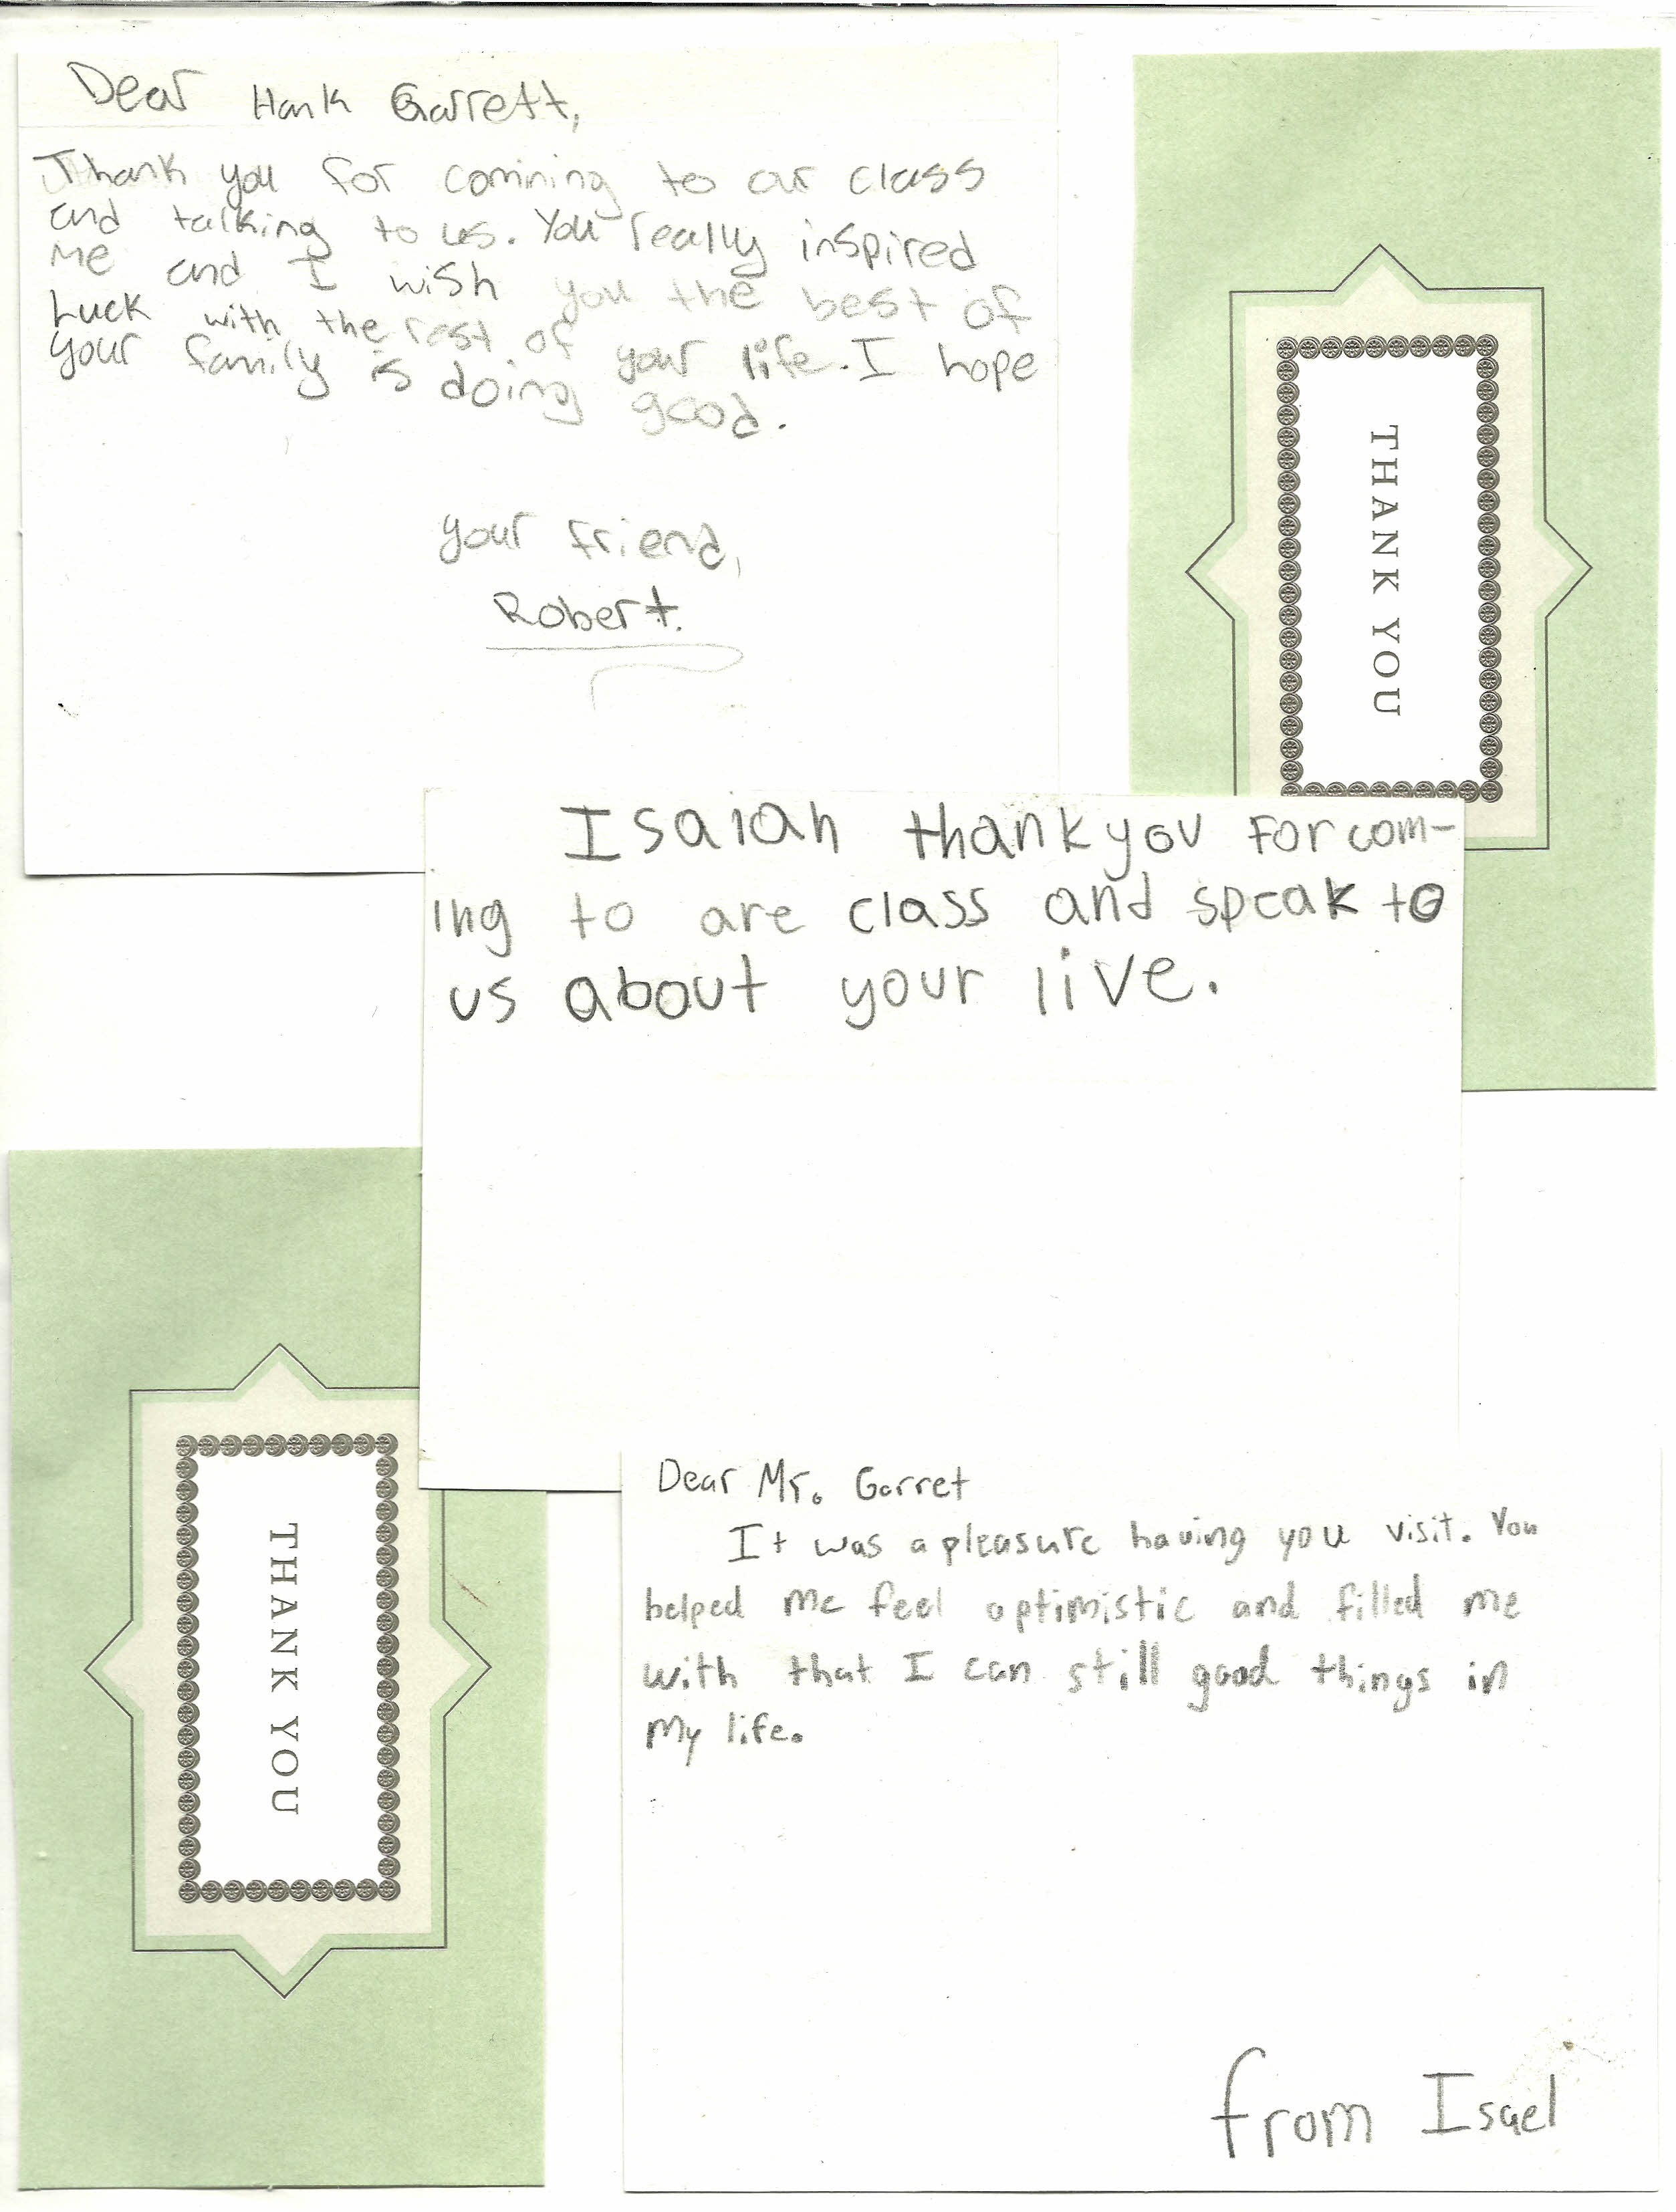 Dear Hank Garrett,
Thank you for comining to our class
and talking to us. You really inspired
me and I wish you the best of
Luck with the rest of your life. I hope
your family is doing good.
your friend,
Robert.
THANK YOU
Isaiah thank you For com-
ing to are class and speak to
us about your live.
THANK YOU
Dear Mr. Garret
It was a pleasure having you visit. You
helped me feel optimistic and filled me
with that I can still good things in
My life.
from Isael